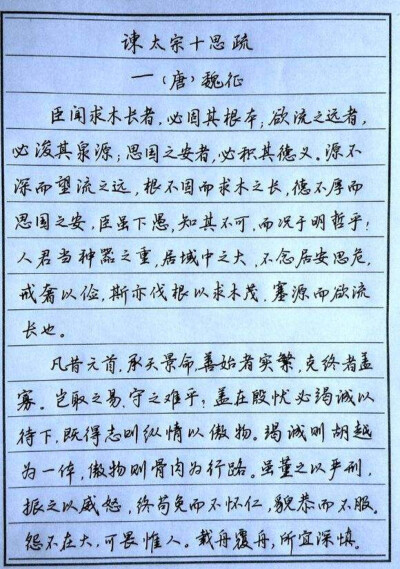 谏太宗十思疏
—(唐)魏征
臣闻求木长者,必固其根本;欲流之远者,
必浚其泉源;思国之安者,必积其德义。源不
深而望流之远,根不固而求木之长,德不厚而
思国之安,臣虽下愚,知其不可,而况于明哲乎?
人君当神器之重,居域中之大,不念居安思危,
戒奢以俭,斯亦伐根以求木茂,塞源而欲流
长也。
凡昔元首,承天景命,善始者实繁,克终者盖
寡。岂取之易,守之难乎?盖在殷忧必竭诚以
待下,既得志则纵情以傲物。竭诚则胡越
为一体,傲物则骨肉为行路。虽董之以严刑,
振之以威怒,终苟免而不怀仁,貌恭而不服。
怨不在大,可畏惟人。载舟覆舟,所宜深慎。